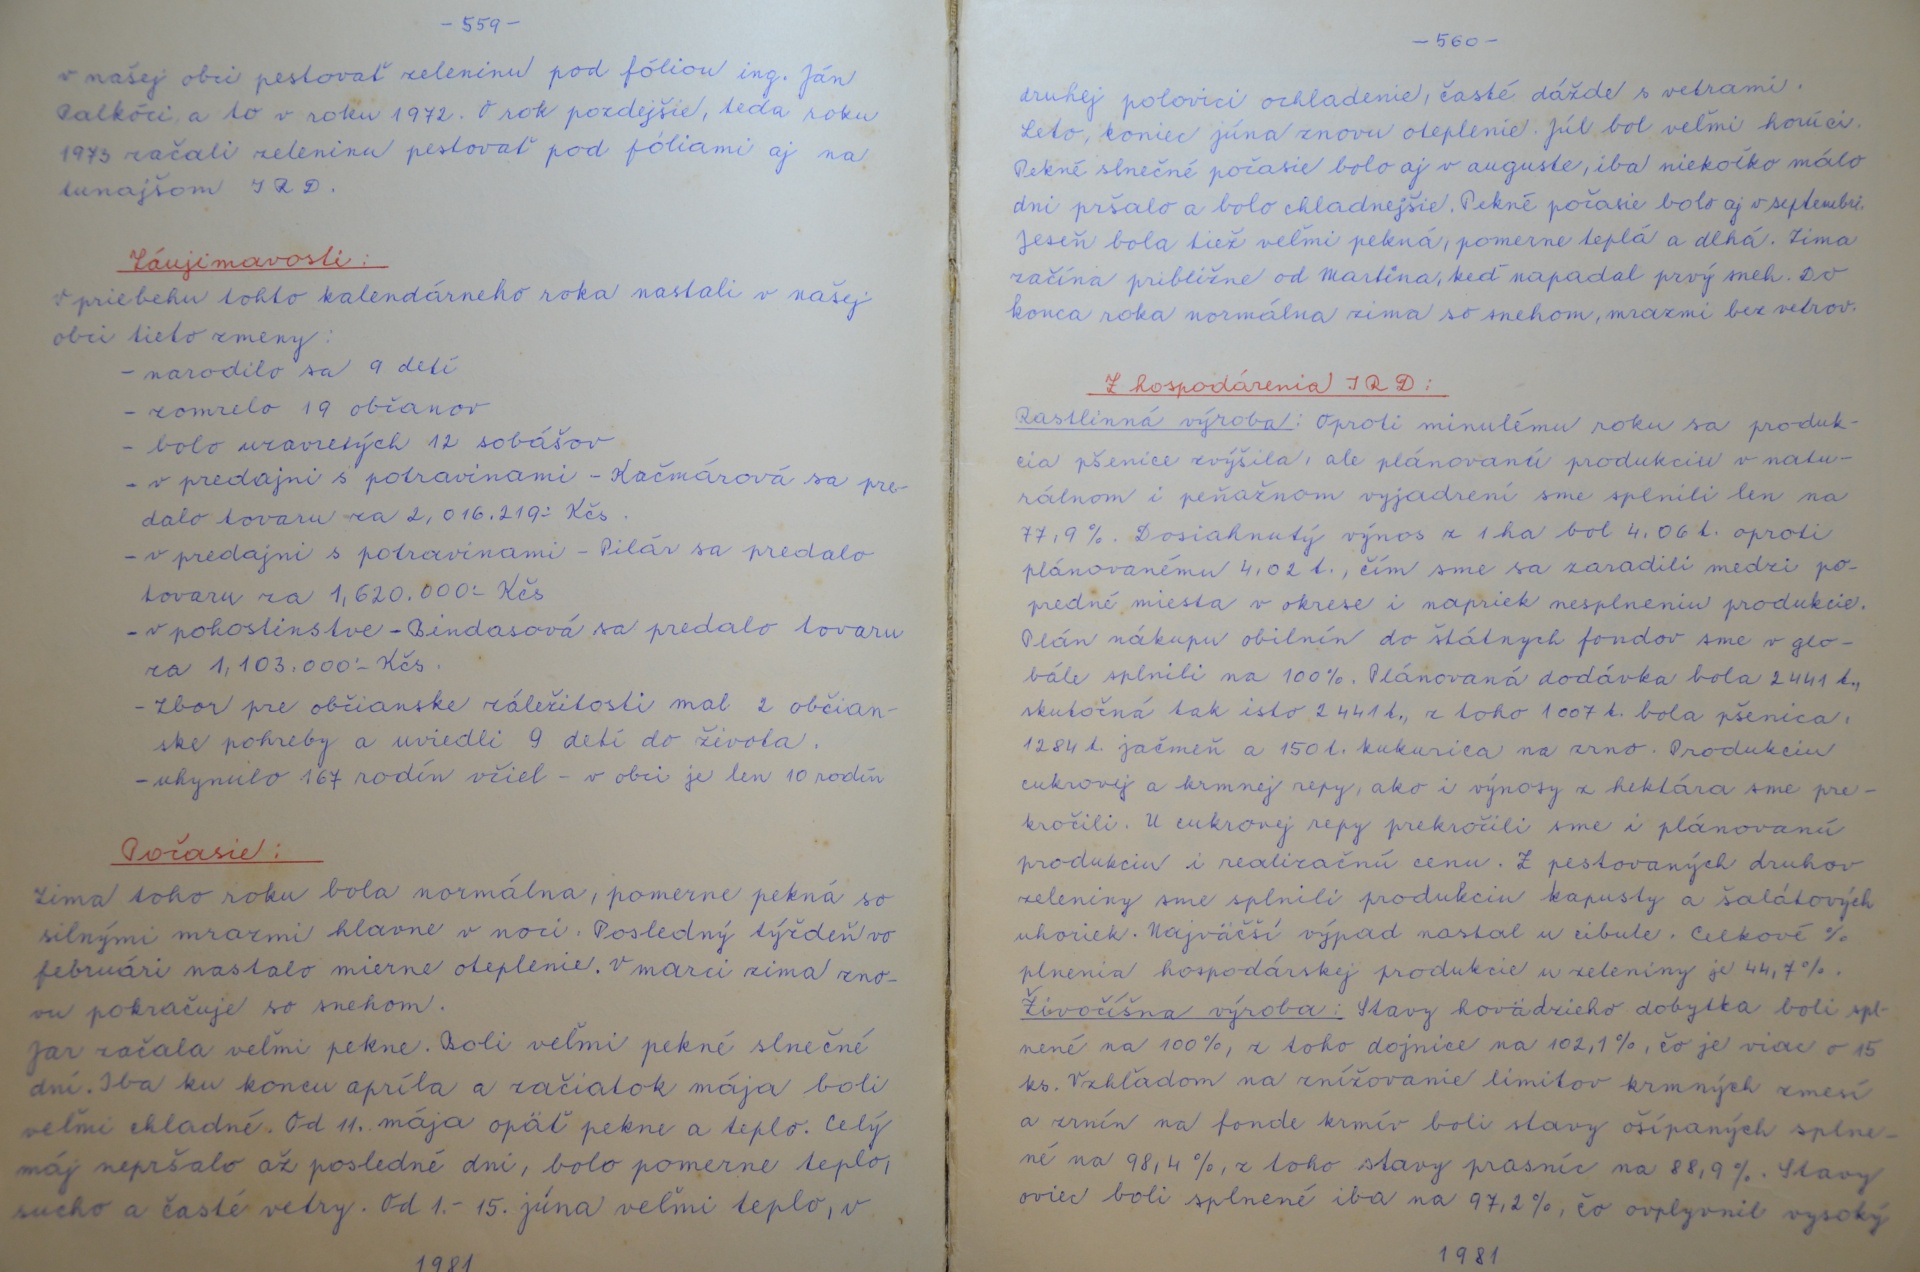 - 559 -
v našej obci pestovať zeleninu pod fóliou ing. Ján
Palkóci a to v roku 1972. O rok pozdejšie, teda roku
1973 začali zeleninu pestovať pod fóliami aj na
tunajšom JRD.
Záujimavosti:
V priebehu tohto kalendárneho roka nastali v našej
obci tieto zmeny:
- narodilo sa 9 detí
- zomrelo 19 občianov
- bolo uzavretých 12 sobášov
- v predajni s potravinami - Kačmárová sa pre-
dalo tovaru za 2,016.219.- Kčs.
- v predajni s potravinami - Pilár sa predalo
tovaru za 1,620.000.- Kčs
- v pohostinstve - Bindasová sa predalo tovaru
za 1,103.000.- Kčs.
- Zbor pre občianske záležitosti mal 2 občian-
ske pohreby a uviedli 9 detí do života.
- uhynulo 167 rodín včiel - v obci je len 10 rodín
Počasie:
Zima toho roku bola normálna, pomerne pekná so
silnými mrazmi hlavne v noci. Posledný týždeň vo
februári nastalo mierne oteplenie. V marci zima zno-
vu pokračuje so snehom.
Jar začala veľmi pekne. Boli veľmi pekné slnečné
dni. Iba ku koncu apríla a začiatok mája boli
veľmi chladné. Od 11. mája opäť pekne a teplo. Celý
máj nepršalo až posledné dni, bolo pomerne teplo,
sucho a časté vetry. Od 1.- 15. júna veľmi teplo, v
1981
- 560 -
druhej polovici ochladenie, časté dážde s vetrami.
Leto, koniec júna znovu oteplenie. Júl bol veľmi horúci.
Pekné slnečné počasie bolo aj v auguste, iba niekoľko málo
dni pršalo a bolo chladnejšie. Pekné počasie bolo aj v septembri.
Jeseň bola tiež veľmi pekná, pomerne teplá a dlhá. Zima
začína približne od Martina, keď napadal prvý sneh. Do
konca roka normálna zima so snehom, mrazmi bez vetrov.
Z hospodárenia JRD:
Rastlinná výroba: Oproti minulému roku sa produk-
cia pšenice zvýšila, ale plánovanú produkciu v natu-
rálnom i peňažnom vyjadrení sme splnili len na
77,9%. Dosiahnutý výnos z 1 ha bol 4.06 t. oproti
plánovanému 4,02 t., čím sme sa zaradili medzi po-
predné miesta v okrese i napriek nesplneniu produkcie.
Plán nákupu obilnín do štátnych fondov sme v glo-
bále splnili na 100%. Plánovaná dodávka bola 2441 t.,
skutočná tak isto 2441 t., z toho 1007 t. bola pšenica,
1284 t. jačmeň a 150 t. kukurica na zrno. Produkciu
cukrovej a krmnej repy, ako i výnosy z hektára sme pre-
kročili. U cukrovej repy prekročili sme i plánovanú
produkciu i realizačnú cenu. Z pestovaných druhov
zeleniny sme splnili produkciu kapusty a šalátových
uhoriek. Najväčší výpad nastal u cibule. Celkové %
plnenia hospodárskej produkcie u zeleniny je 44,7%.
Živočíšna výroba: Stavy hovädzieho dobytka boli spl-
nené na 100%, z toho dojnice na 102,1%, čo je viac o 15
ks. Vzhľadom na znižovanie limitov krmných zmesí
a zrnín na fonde krmív boli stavy ošípaných splne-
né na 98,4%, z toho stavy prasníc na 88,9%. Stavy
oviec boli splnené iba na 97,2%, čo ovplyvnil vysoký
1981